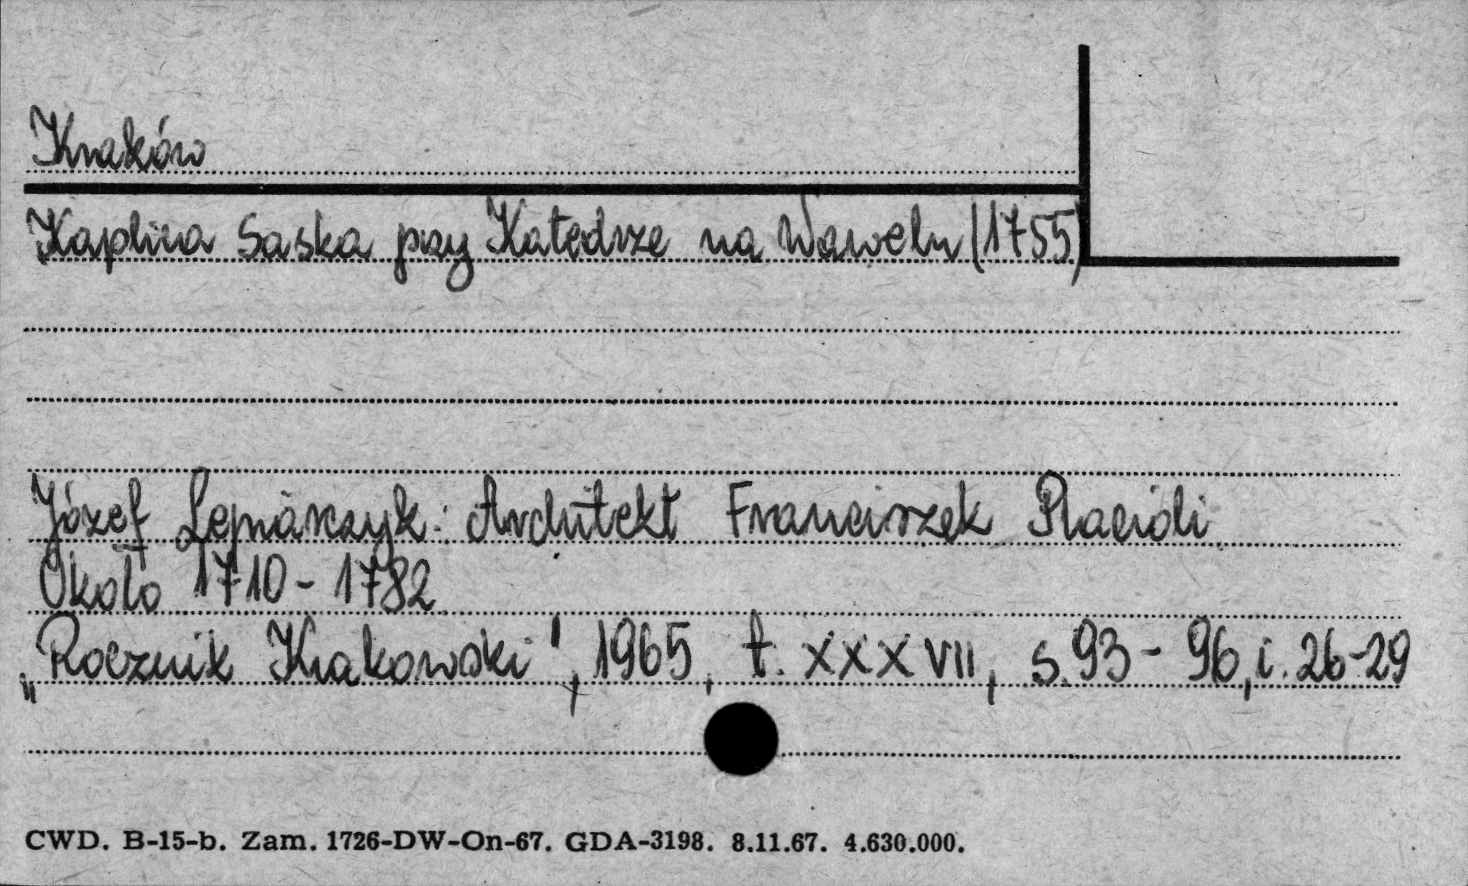 Kraków
Kaplica Saska przy Katedrze na Wawelu (1755)
Józef Lepiarczyk: Architekt Franciszek Placidi
Około 1710 - 1782
„Rocznik Krakowski", 1965, t. XXXVII, s. 93 - 96, i. 26-29
CWD. B-15-b. Zam. 1726-DW-On-67. GDA-3198. 8.11.67. 4.630.000.